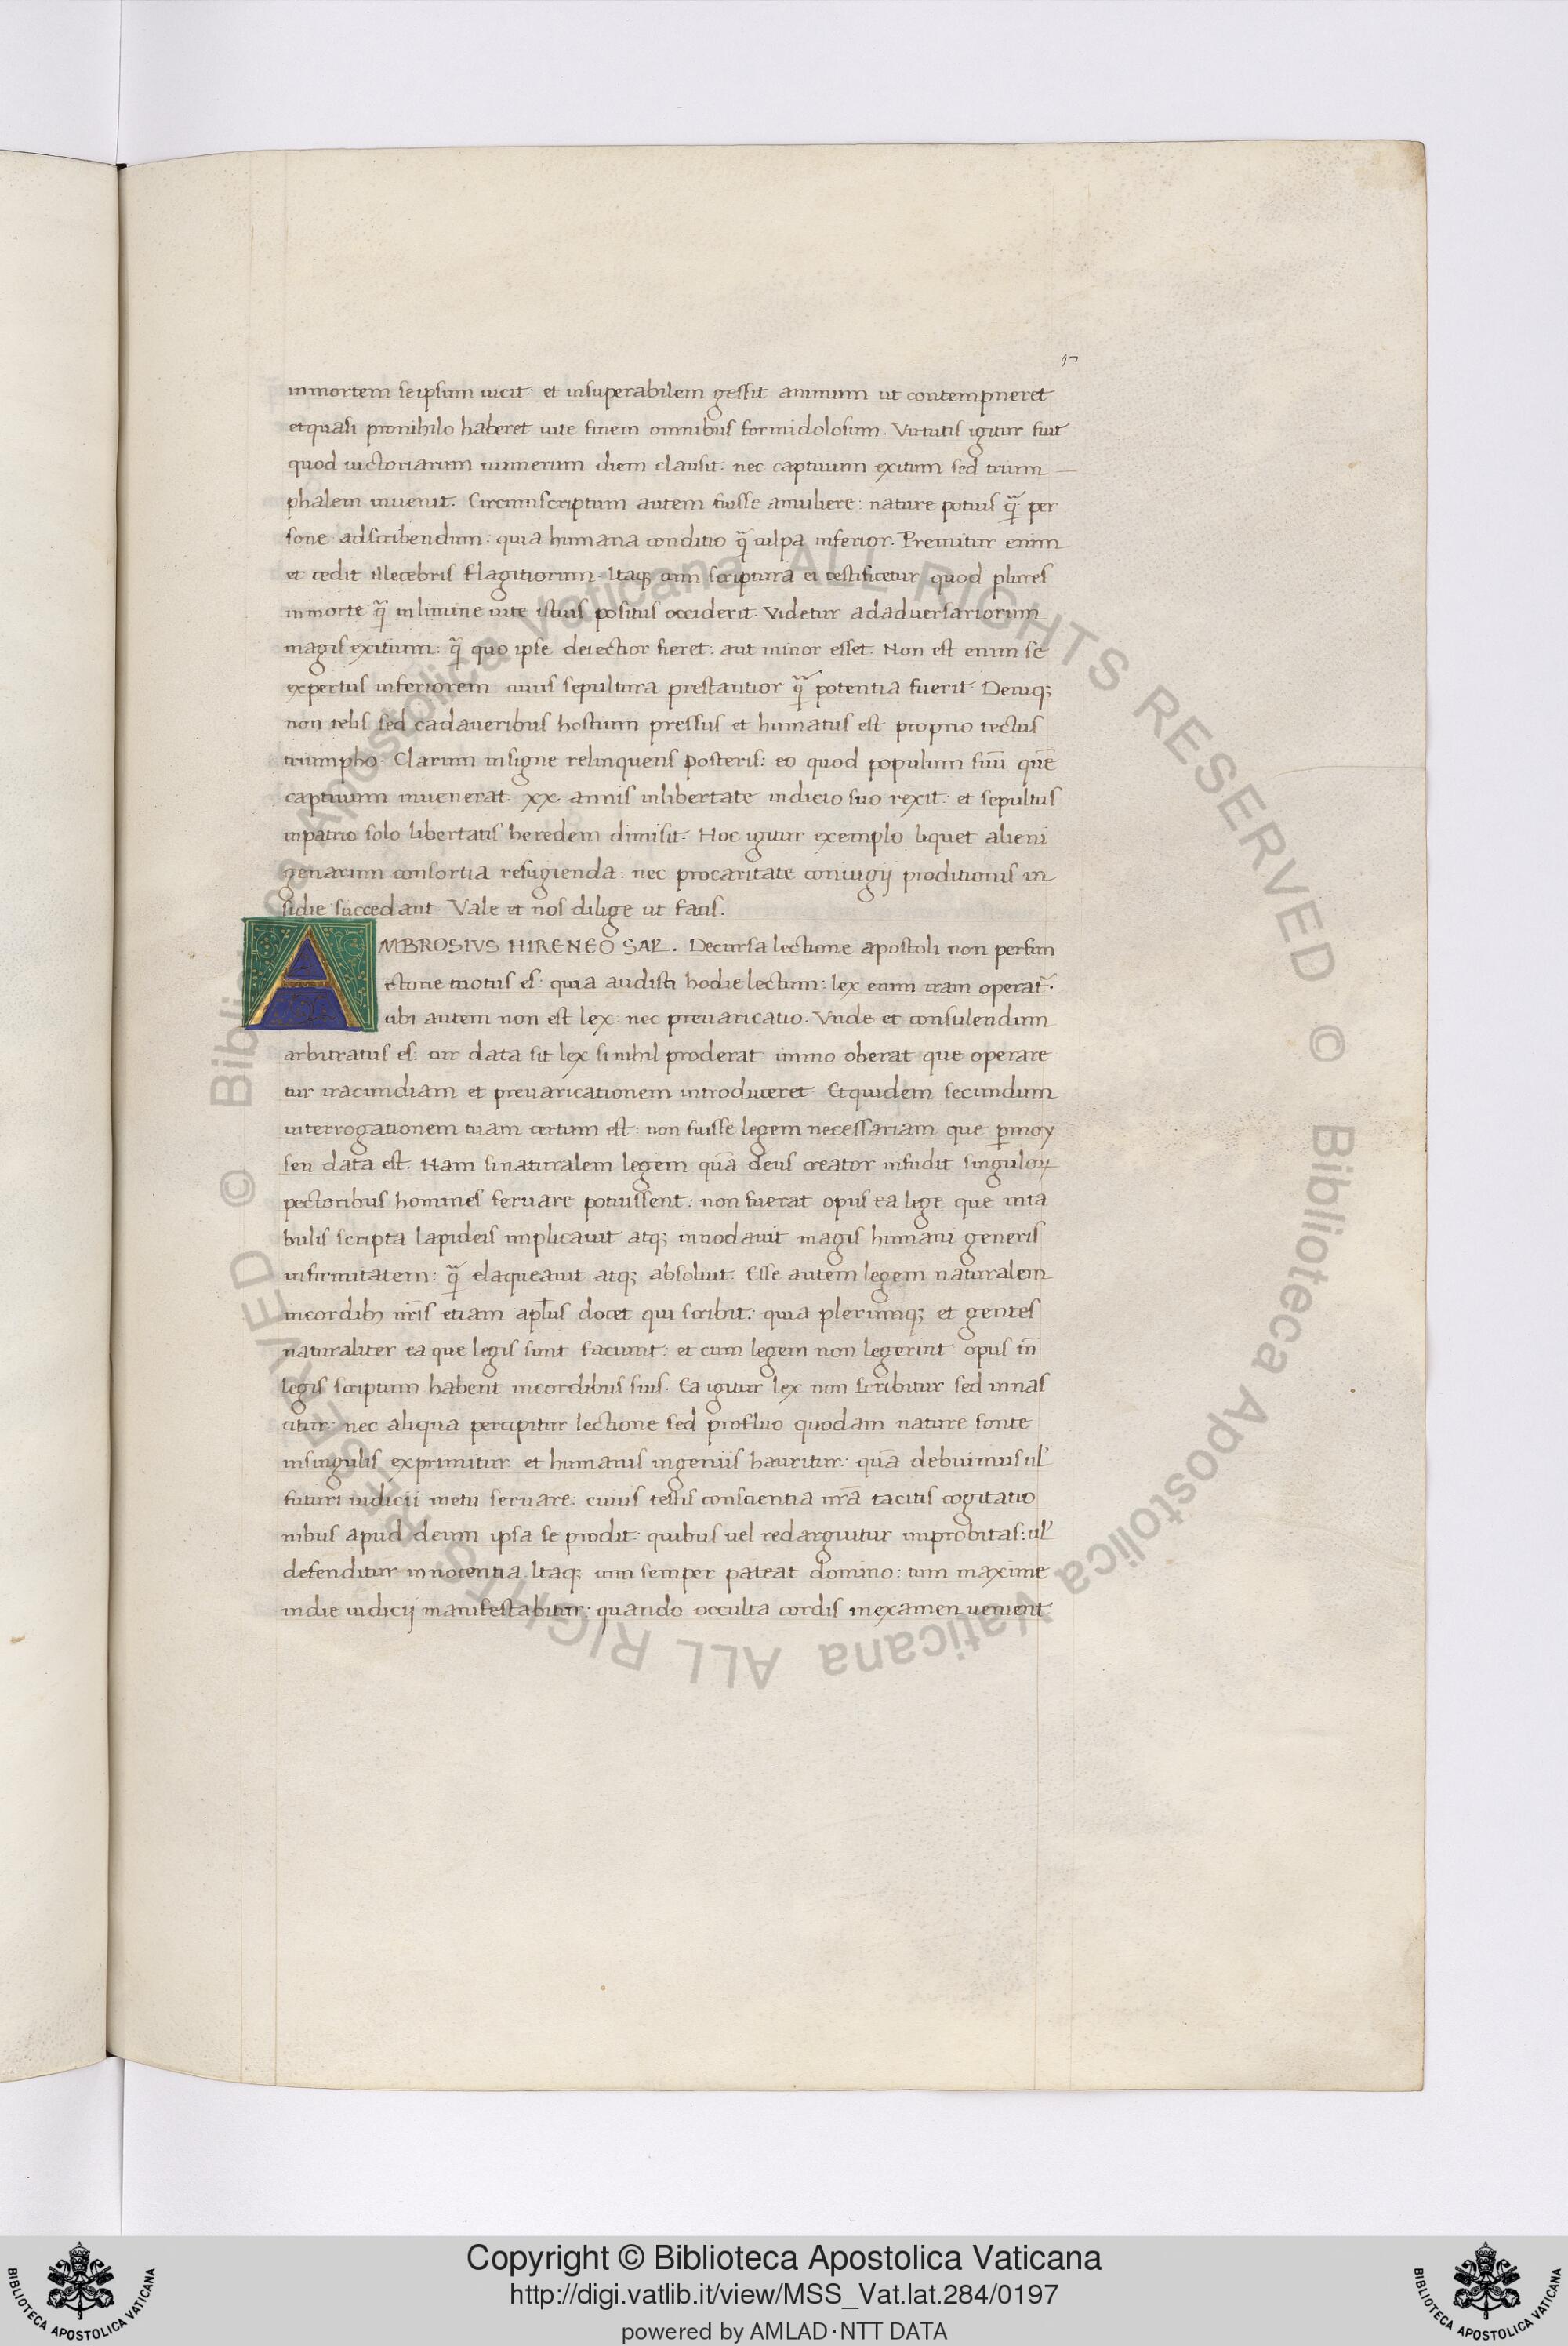 97
inmortem seipsum uicit: et insuperabilem gessit animum ut contempneret
etquasi pronihilo haberet uite finem omnibus formidolosum. Virtutis igitur fuit
quod uictoriarum numerum diem clausit. nec captiuum exitum sed trium
phalem inuenit. Circumscriptum autem fuisse amuliere: nature potius q̃ per
sone adscribendum: quia humana conditio q̃ culpa inferior. Premitur enim
et cedit illecebris flagitiorum. Itaq; cum scriptura ei testificetur quod plures
inmorte q̃ inlimine uite istius positus occiderit. Videtur adaduersariorum
magis exitium: q̃ quo ipse deiectior fieret: aut minor esset. Non est enim se
expertus inferiorem cuius sepultura prestantior q̃ potentia fuerit. Deniq;
non telis sed cadaueribus hostium pressus et humatus est proprio tectus
triumpho. Clarum insigne relinquens posteris: eo quod populum suū quē
captiuum inuenerat. xx. annis inlibertate iudicio suo rexit: et sepultus
inpatrio solo libertatis heredem dimisit. Hoc igitur exemplo liquet alieni
genarum consortia refugienda: nec procaritate coniugij proditionis in
sidie succedant. Vale et nos dilige ut facis.
AMBROSIVS HIRENEO SAL. Decursa lectione apostoli non perfun
ctorie motus es: quia audisti hodie lectum: lex enim iram operat̃.
ubi autem non est lex: nec preuaricatio. Vnde et consulendum
arbitratus es: cur data sit lex si nihil proderat. immo oberat que operare
tur iracundiam et preuaricationem introduceret. Etquidem secundum
interrogationem tuam certum est: non fuisse legem necessariam que p̱moy
sen data est. Nam sinaturalem legem quā deus creator infudit singuloꝝ
pectoribus homines seruare potuissent: non fuerat opus ea lege que inta
bulis scripta lapideis implicauit atq; innodauit magis humani generis
infirmitatem: q̃ elaqueauit atq; absoluit. Esse autem legem naturalem
incordib; nr̃is etiam apl̃us docet qui scribit: quia plerumq; et gentes
naturaliter ea que legis sunt faciunt: et cum legem non legerint opus tn̄
legis scriptum habent incordibus suis. Ea igitur lex non scribitur sed innas
citur: nec aliqua percipitur lectione sed profluo quodam nature fonte
insingulis exprimitur et humanis ingeniis hauritur: quā debuimus ul'
futuri iudicii metu seruare: cuius testis conscientia nr̃a tacitis cogitatio
nibus apud deum ipsa se prodit: quibus uel redarguitur improbitas: ul'
defenditur innocentia. Itaq; cum semper pateat domino: tum maxime
indie iudicij manifestabitur: quando occulta cordis inexamen uenient
© Biblioteca Apostolica Vaticana ALL RIGHTS RESERVED © Biblioteca Apostolica Vaticana ALL RIGHTS RESERVED
Copyright © Biblioteca Apostolica Vaticana
http://digi.vatlib.it/view/MSS_Vat.lat.284/0197
powered by AMLAD·NTT DATA
BIBLIOTECA APOSTOLICA VATICANA
BIBLIOTECA APOSTOLICA VATICANA